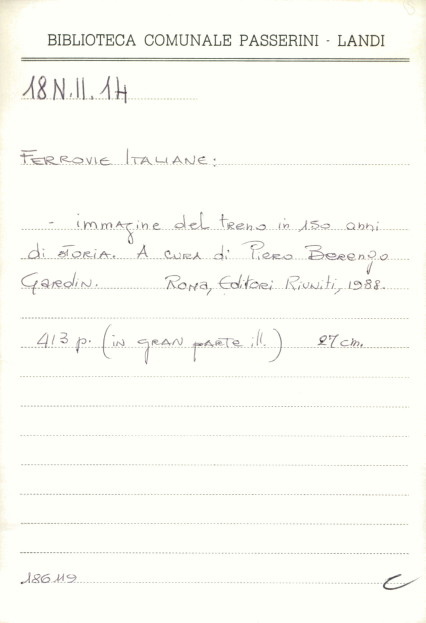 BIBLIOTECA COMUNALE PASSERINI - LANDI
18 N.II.14
FERROVIE ITALIANE:
- immagine del treno in 150 anni
di storia. A cura di Piero Berengo
Gardin. Roma, Editori Riuniti, 1988.
413 p. (in gran parte ill.) 27 cm.
186119
C